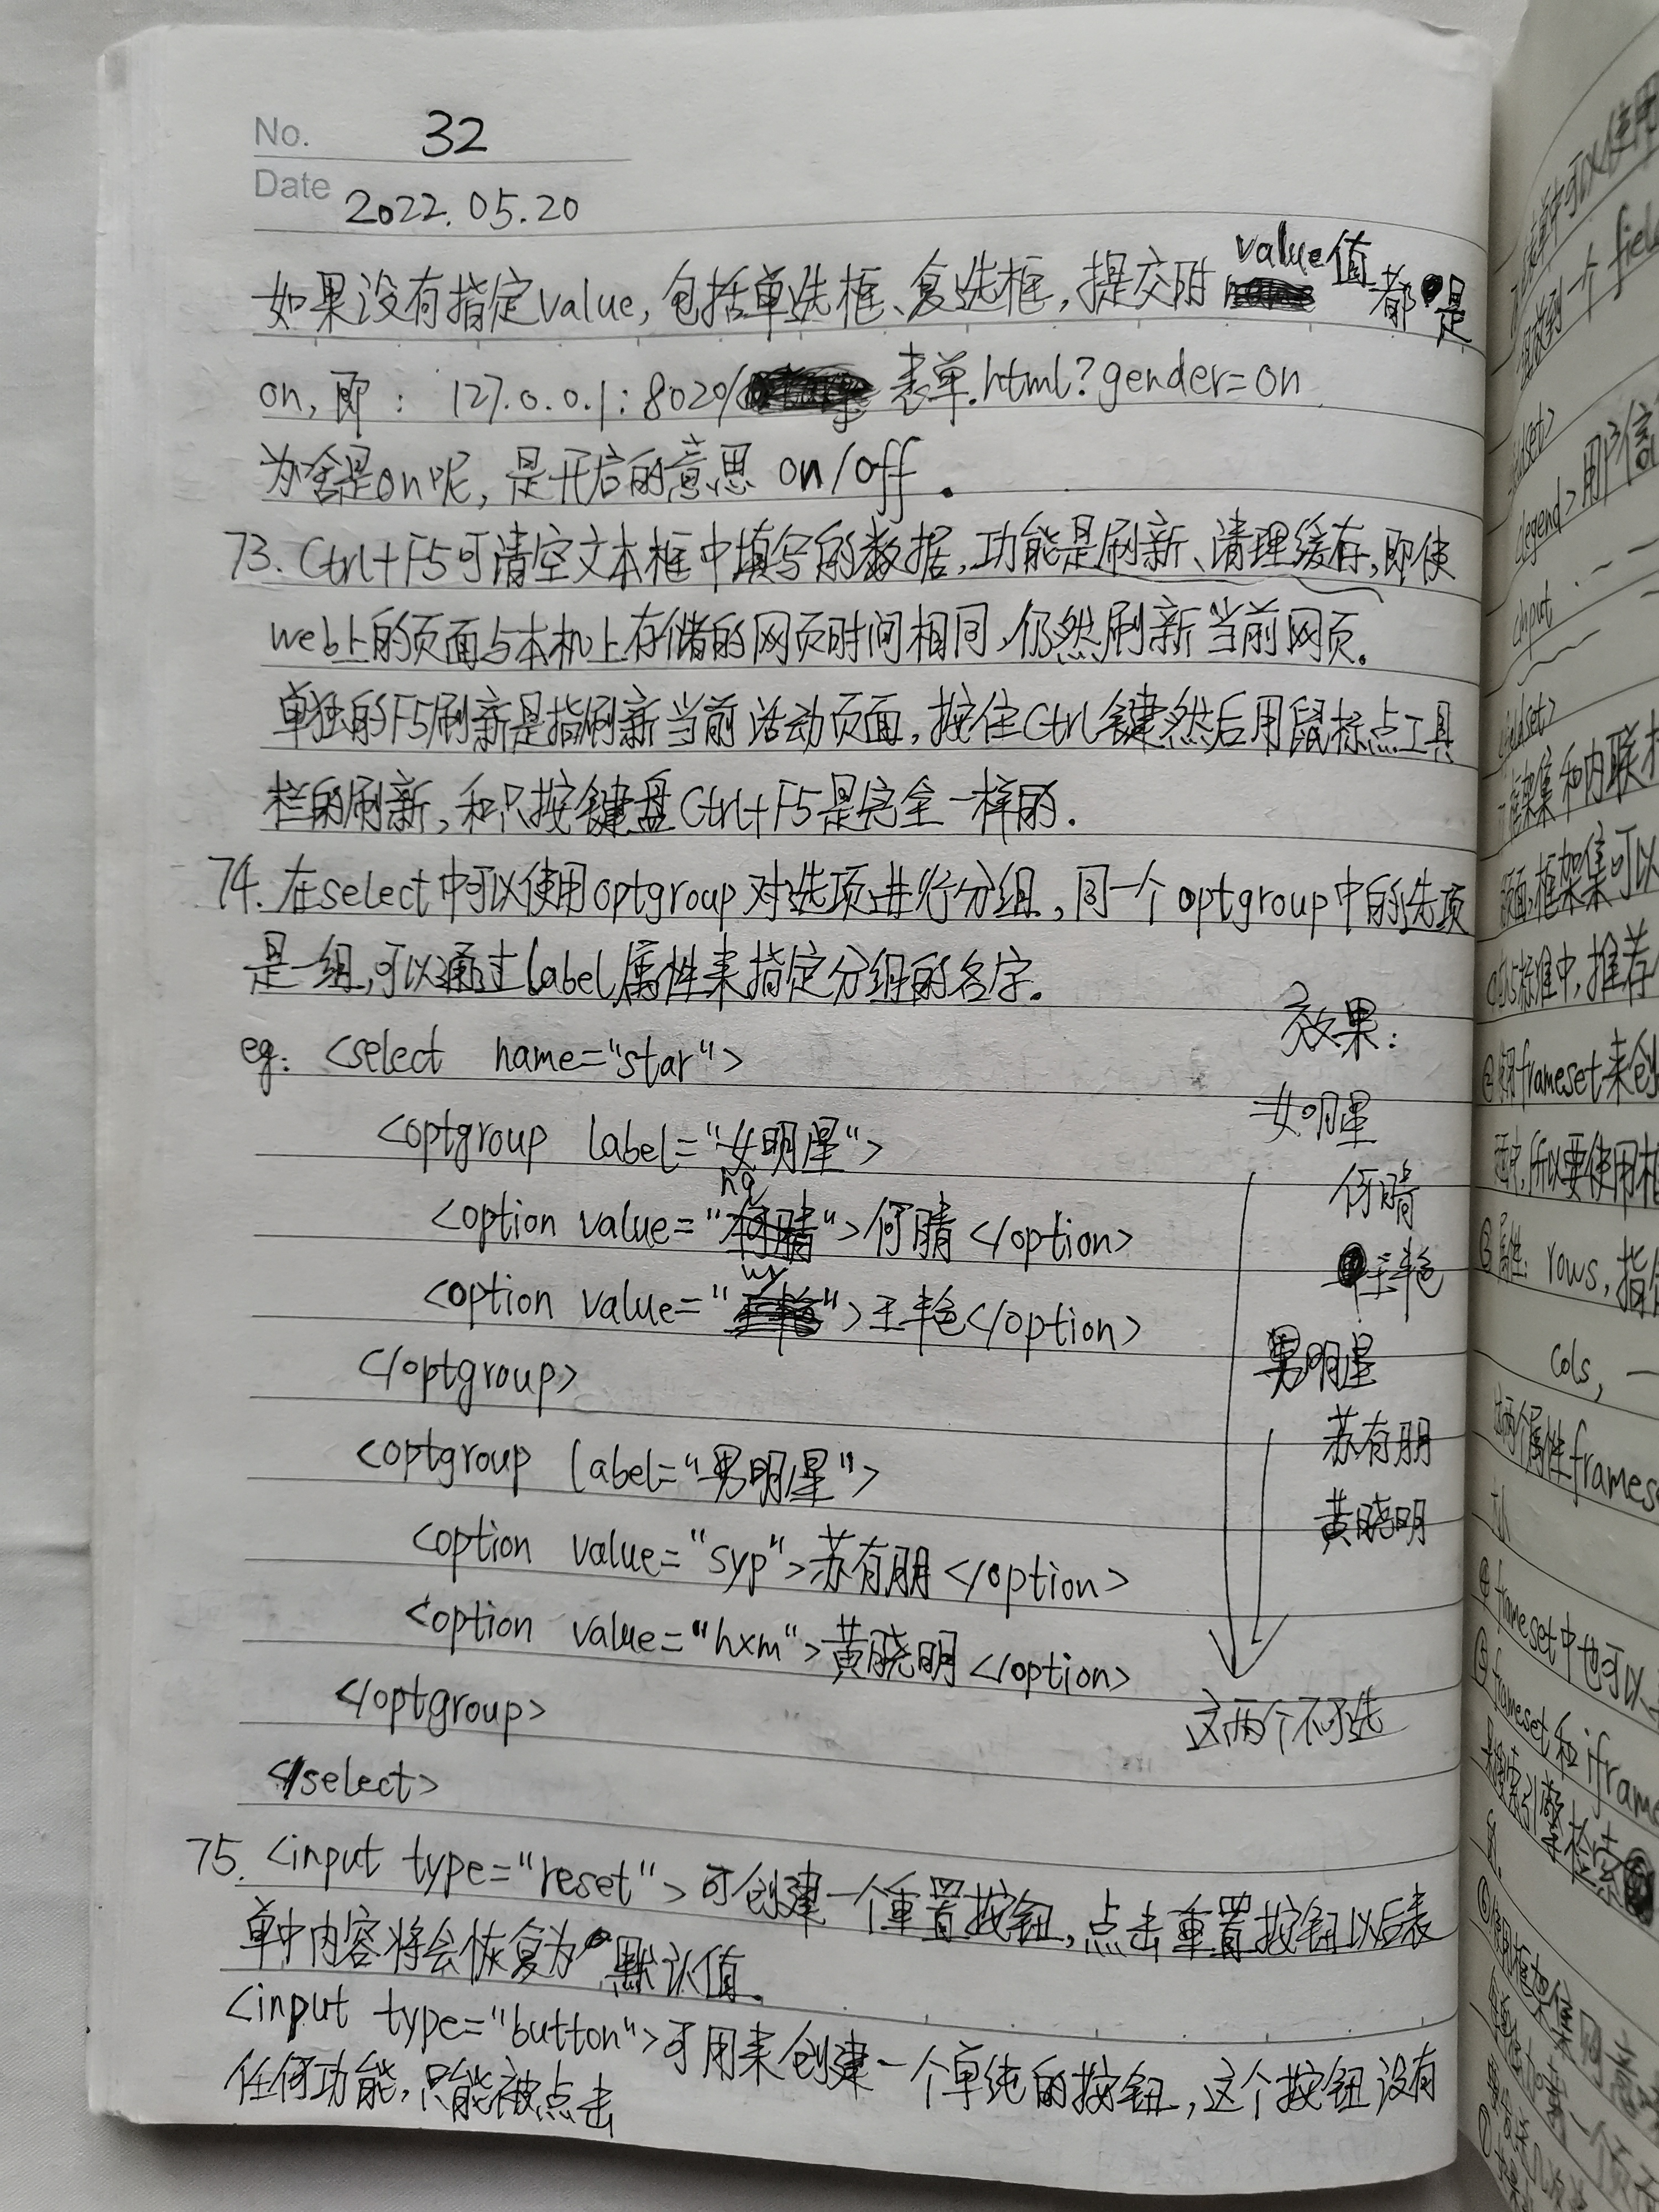 No. 32
Date 2022.05.20
如果没有指定value,包括单选框、复选框,提交时value值都是
on,即: 127.0.0.1:8020/表单.html?gender=on
为啥是on呢,是开启的意思 on/off.
73. Ctrl+F5可清空文本框中填写的数据,功能是刷新、清理缓存,即使
web上的页面与本机上存储的网页时间相同,仍然刷新当前网页.
单独的F5刷新是指刷新当前活动页面,按住Ctrl键然后用鼠标点工具
栏的刷新,和只按键盘Ctrl+F5是完全一样的.
74. 在select中可以使用optgroup对选项进行分组,同一个optgroup中的选项
是一组,可以通过label属性来指定分组的名字.
eg: <select name="star">
<optgroup label="女明星">
<option value="hq">何晴</option>
<option value="wy">王艳</option>
</optgroup>
<optgroup label="男明星">
<option value="syp">苏有朋</option>
<option value="hxm">黄晓明</option>
</optgroup>
</select>
效果:
女明星
何晴
王艳
男明星
苏有朋
黄晓明
这两个不可选
75. <input type="reset">可创建一个重置按钮,点击重置按钮以后表
单中内容将会恢复为默认值.
<input type="button">可用来创建一个单纯的按钮,这个按钮没有
任何功能,只能被点击
<legend>用户信
<input
框架集和内联
页面,框架集可以
标准中,推荐
frameset来创
所以要使用
属性: rows,指
cols,
两个属性frames
④ frameset中也可以
⑤ frameset和iframe
搜索引擎